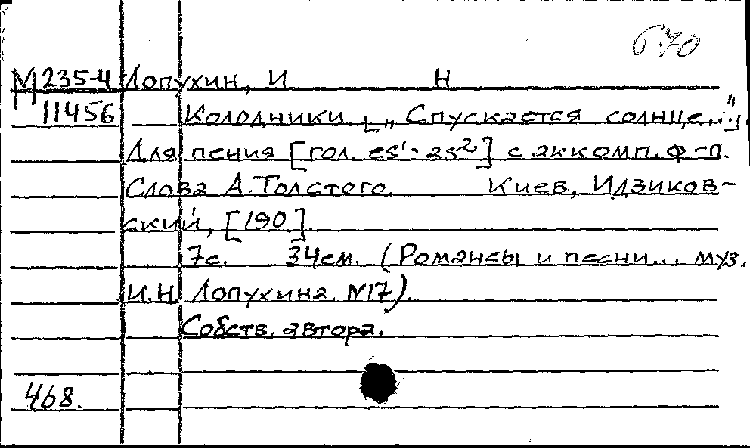 670
М 235-4 Лопухин, И Н
11456 Колодники. [„Спускается солнце..."].
Для пения [гол. es¹-as²] с аккомп. ф-п.
Слова А. Толстого. Киев, Идзиков-
ский, [190 ].
7с. 34см. (Романсы и песни... муз.
И.Н. Лопухина. N17).
Собств. автора.
468.